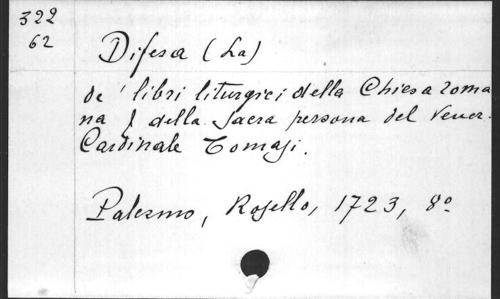 322
62
Difesa (La)
de' libri liturgici della Chiesa roma
na e della Sacra persona del Vener.
Cardinale Tomasi.
Palermo, Rosello, 1723, 8º